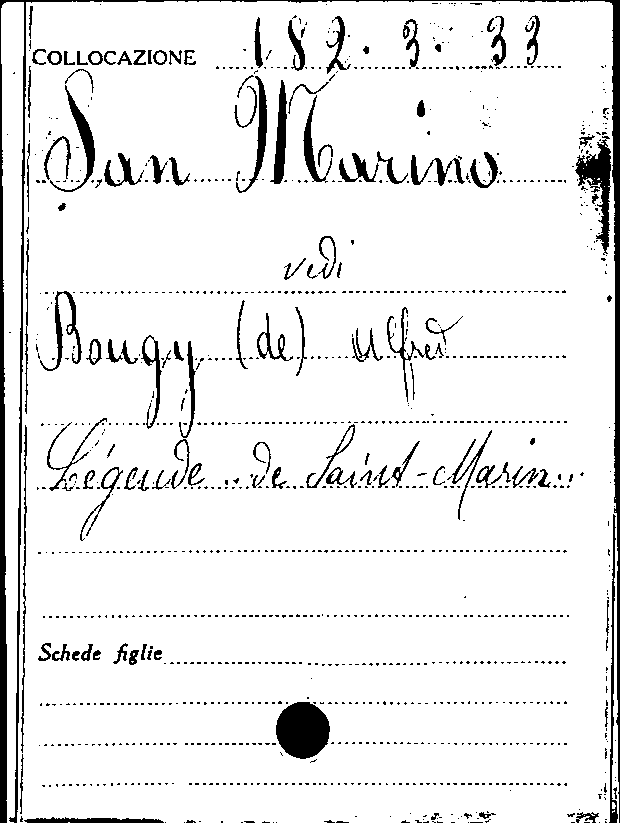 COLLOCAZIONE 182.3.33
San Marino
vedi
Bougy (de) Alfred
Légende .. de Saint-Marin...
Schede figlie